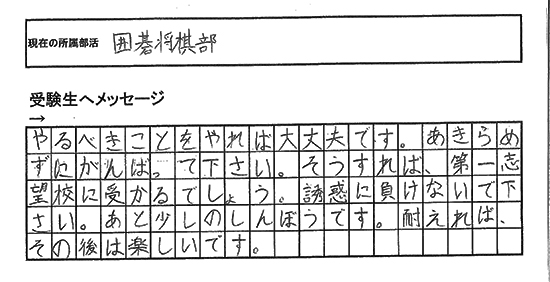 現在の所属部活 囲碁将棋部
受験生へメッセージ
→
やるべきことをやれば大丈夫です。あきらめ
ずにがんばって下さい。そうすれば、第一志
望校に受かるでしょう。誘惑に負けないで下
さい。あと少しのしんぼうです。耐えれば、
その後は楽しいです。